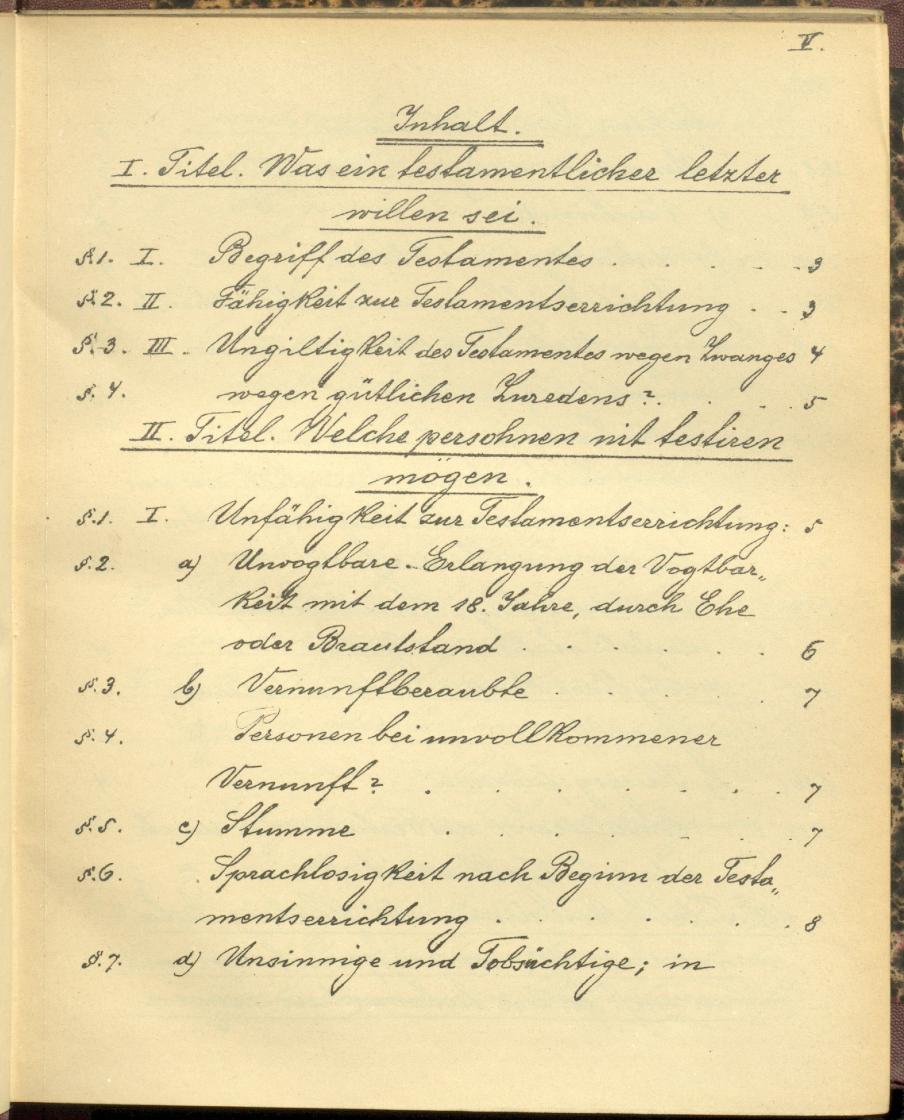 V.
Inhalt.
I. Titel. Was ein testamentlicher letzter
willen sei.
§.1. I. Begriff des Testamentes . . . . . 3
§.2. II. Fähigkeit zur Testamentserrichtung . . 3
§.3. III. Ungiltigkeit des Testamentes wegen Zwanges 4
§.4. wegen gütlichen Zuredens? . . . . 5
II. Titel. Welche persohnen nit testiren
mögen.
§.1. I. Unfähigkeit zur Testamentserrichtung: 5
§.2. a) Unvogtbare. Erlangung der Vogtbar„
keit mit dem 18. Jahre, durch Ehe
oder Brautstand . . . . . . 6
§.3. b) Vernunftberaubte . . . . . 7
§.4. Personen bei unvollkommener
Vernunft? . . . . . . . . 7
§.5. c) Stumme . . . . . . . 7
§.6. Sprachlosigkeit nach Beginn der Testa„
mentserrichtung . . . . . . 8
§.7. d) Unsinnige und Tobsüchtige; in